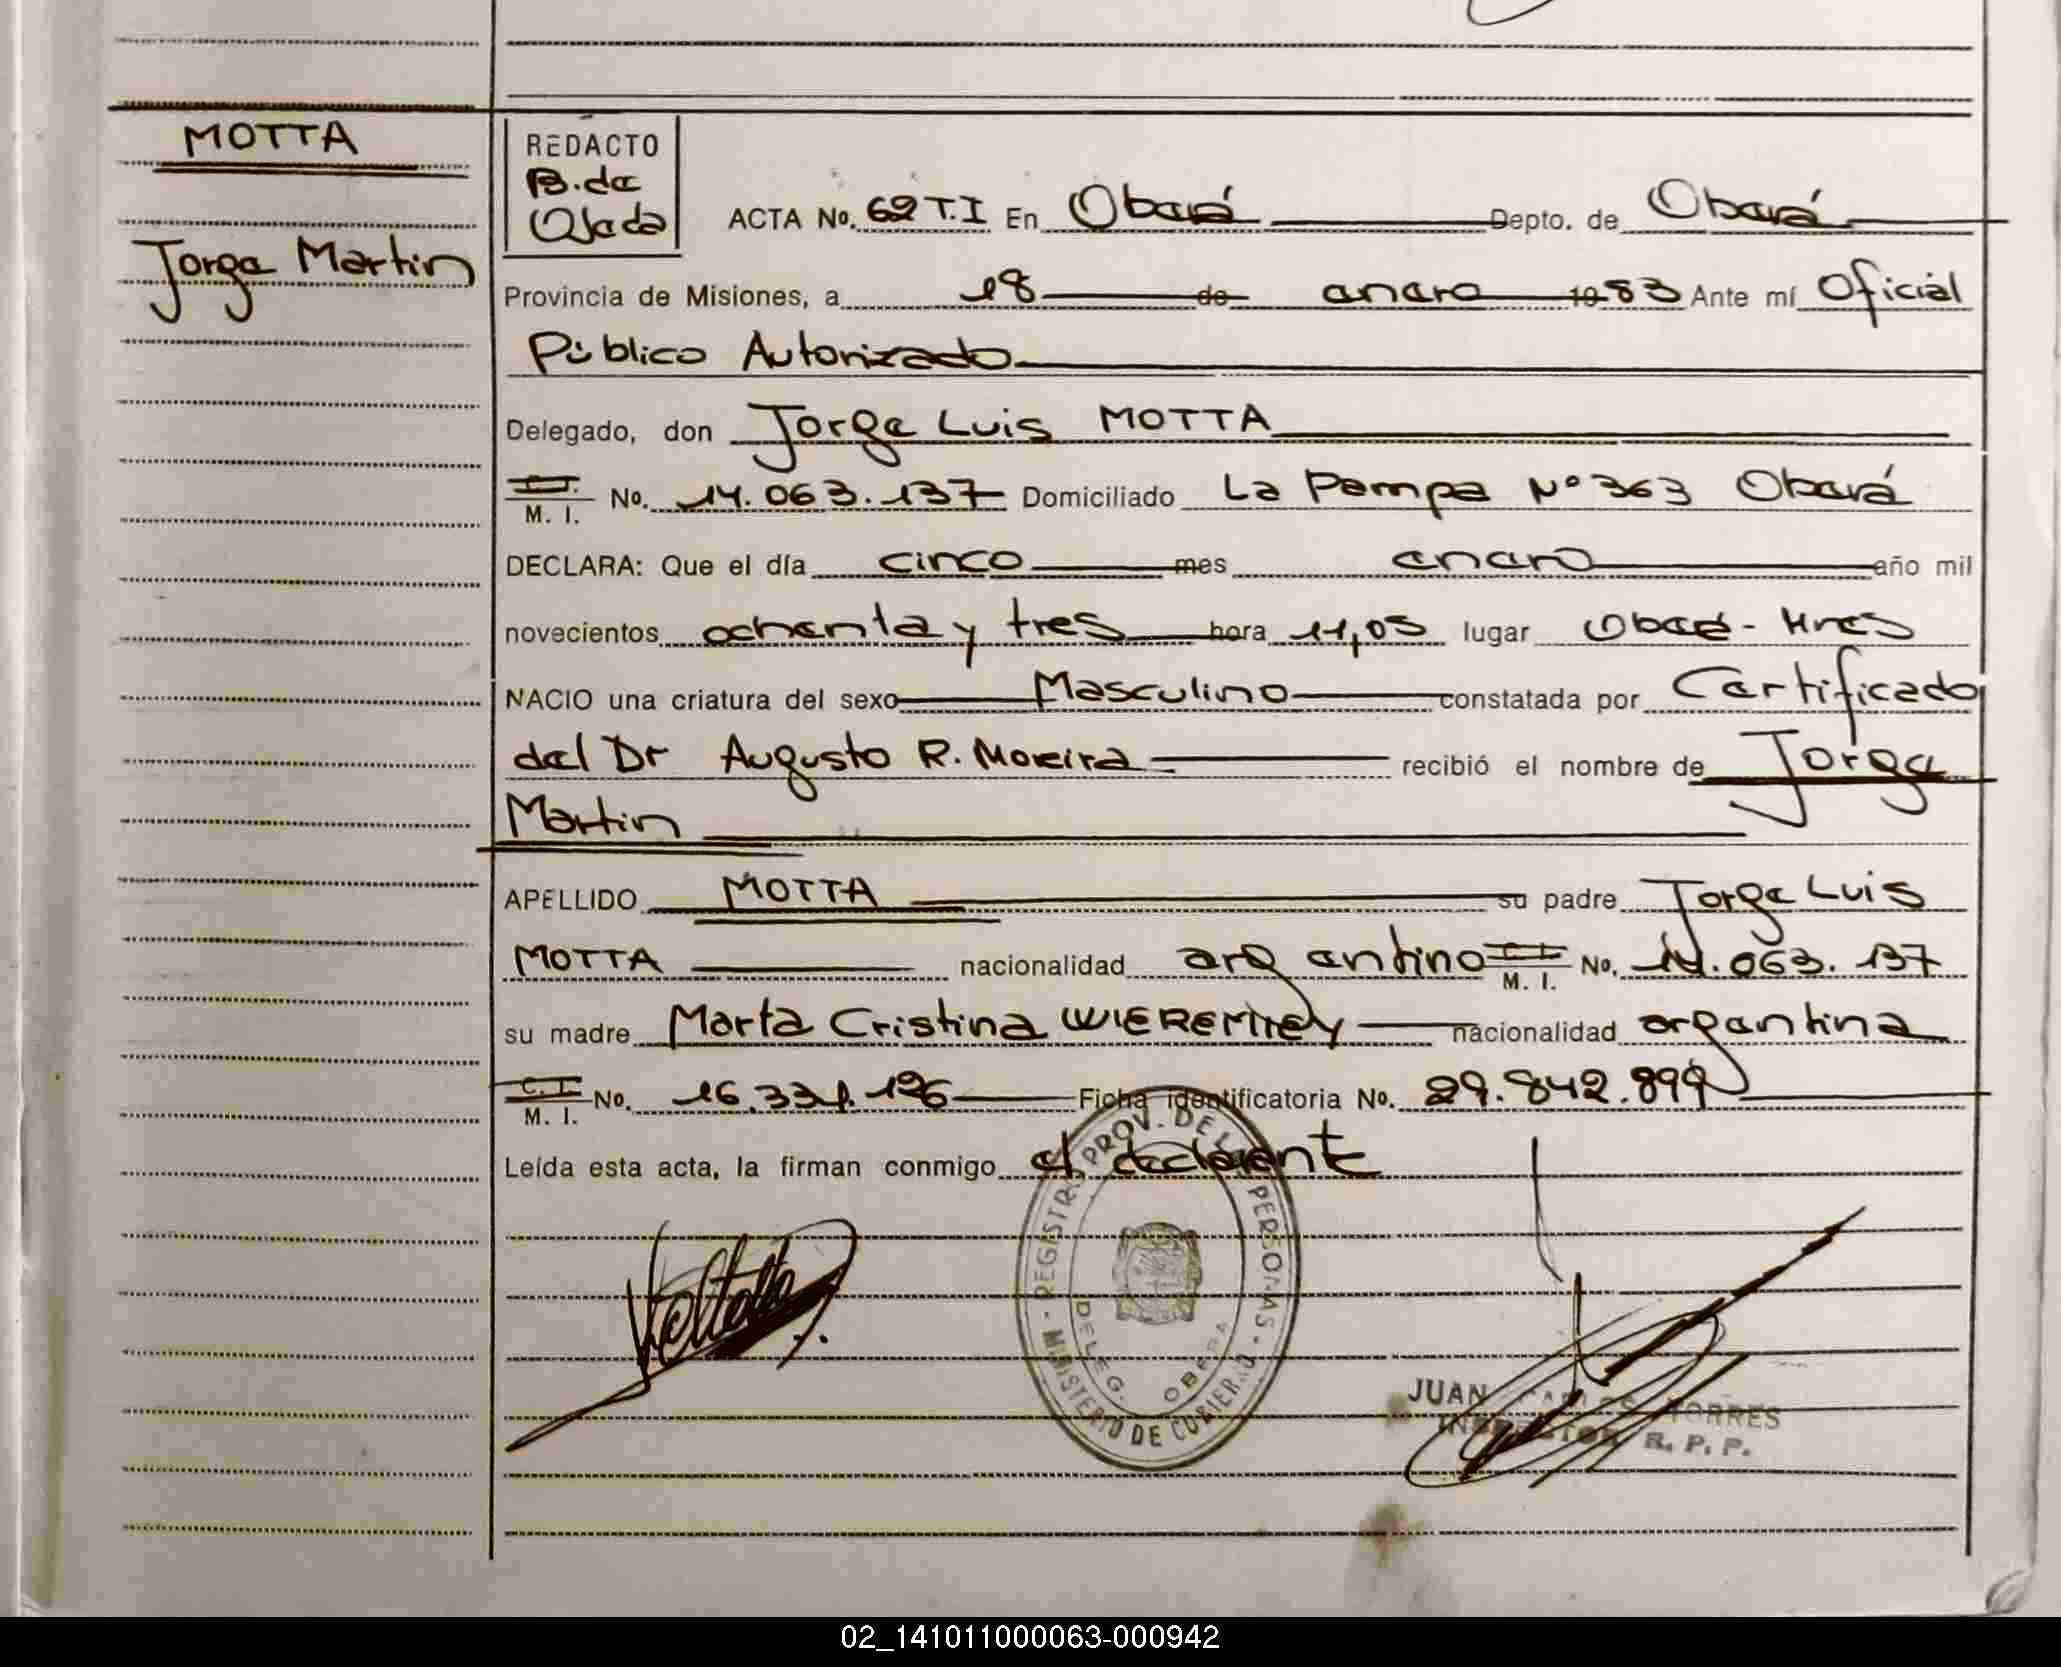 MOTTA
Jorge Martin
REDACTO
B. de
Ojeda
ACTA No. 62 T.I En Oberá Depto. de Oberá
Provincia de Misiones, a 18 de enero 1983 Ante mí Oficial
Público Autorizado
Delegado, don Jorge Luis MOTTA
M. I. No. 14.063.137 Domiciliado La Pampa Nº 363 Oberá
DECLARA: Que el día cinco mes enero año mil
novecientos ochenta y tres hora 11,05 lugar Oberá - Mnes
NACIO una criatura del sexo Masculino constatada por Certificado
del Dr Augusto R. Moreira recibió el nombre de Jorge
Martin
APELLIDO MOTTA su padre Jorge Luis
MOTTA nacionalidad argentino C. I. M. I. No. 14.063.137
su madre Marta Cristina nacionalidad argentina
C. I. M. I. No. 16.331.196 Ficha identificatoria No. 29.842.899
Leída esta acta, la firman conmigo el declarante
REGISTRO PROV. DE LAS PERSONAS - MINISTERIO DE GOBIERNO
DELEG. OBERA
JUAN CARLOS TORRES
INSPECTOR R. P. P.
02_141011000063-000942